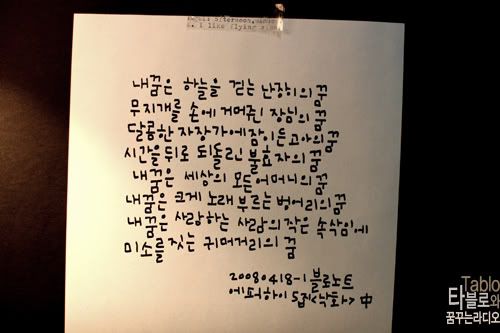 내꿈은 하늘을 걷는 난장이의 꿈
무지개를 손에 거머쥔 장님의 꿈
달콤한 자장가에 잠이 든 고아의 꿈
시간을 뒤로 되돌린 불효자의 꿈
내꿈은 세상의 모든 어머니의 꿈
내꿈은 크게 노래 부르는 벙어리의 꿈
내꿈은 사랑하는 사람의 작은 속삭임에
미소를 짓는 귀머거리의 꿈
20080418-1 블로노트
에픽하이 5집<낙화> 中
Tablo
타블로와
꿈꾸는라디오